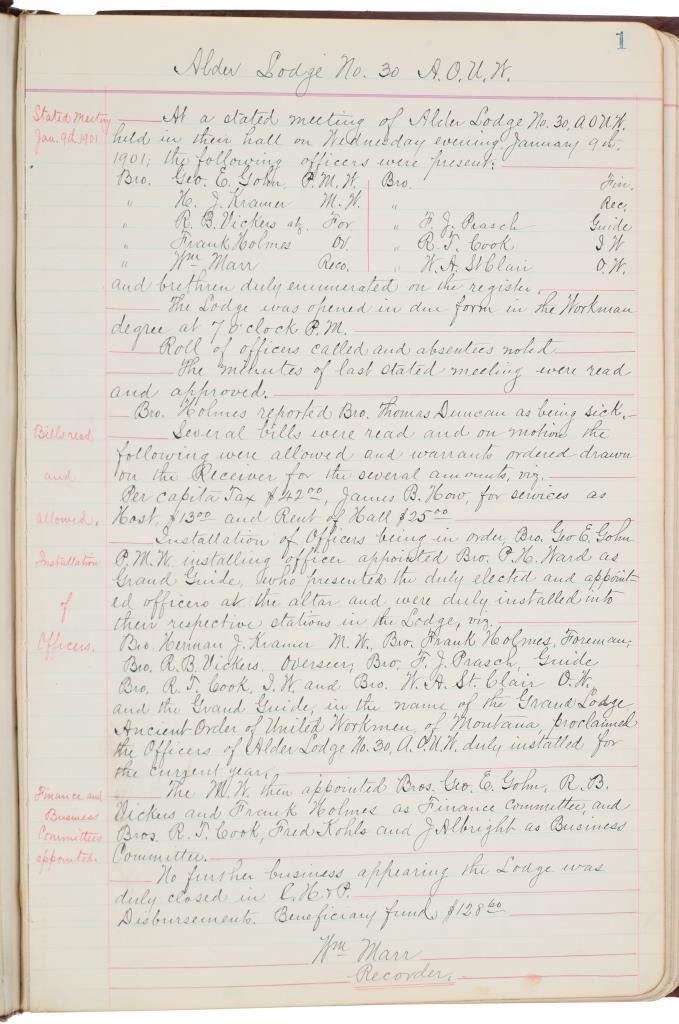 1
Alder Lodge No. 30 A.O.U.W.
Stated Meeting
Jan. 9th 1901
At a stated meeting of Alder Lodge No. 30, A.O.U.W.
held in their hall on Wednesday evening January 9th.
1901; the following officers were present:
Bro. Geo. E. Gohn, P.M.W. Bro. Fin.
" H. J. Kramer M.W. " Rec.
" R. B. Vickers For. " F. J. Prasch Guide
" Frank Holmes Ov. " R. T. Cook I W
" Wm Marr Reco. " W. A. St Clair O.W.
and brethren duly enumerated on the register.
The Lodge was opened in due form in the Workman
degree at 7 o'clock P.M.
Roll of officers called and absentees noted
The minutes of last stated meeting were read
and approved.
Bro. Holmes reported Bro. Thomas Duncan as being sick.
Bills read
and
allowed.
Several bills were read and on motion the
following were allowed and warrants ordered drawn
on the Receiver for the several amounts, viz.
Per capita Tax $42.00, James B. How, for services as
Host, $13.00 and Rent of Hall $25.00
Installation
of
Officers.
Installation of Officers being in order, Bro. Geo E. Gohn
P.M.W. installing officer appointed Bro. P. H. Ward as
Grand Guide, who presented the duly elected and appoint-
ed officers at the altar and were duly installed into
their respective stations in the Lodge, viz.
Bro. Herman J. Kramer M.W., Bro. Frank Holmes, Foreman;
Bro. R. B. Vickers, Overseer; Bro. F. J. Prasch, Guide
Bro. R. T. Cook, I.W. and Bro. W. A. St. Clair O.W.
and the Grand Guide, in the name of the Grand Lodge
Ancient Order of United Workmen, of Montana, proclaimed
the Officers of Alder Lodge No. 30, A.O.U.W. duly installed for
the current year.
Finance and
Business
Committees
appointed.
The M.W. then appointed Bros. Geo. E. Gohn, R. B.
Vickers and Frank Holmes as Finance Committee, and
Bros. R. T. Cook, Fred Kohls and J Albright as Business
Committee.
No further business appearing the Lodge was
duly closed in C. H. & P.
Disbursements. Beneficiary fund, $128.60
Wm Marr
Recorder.